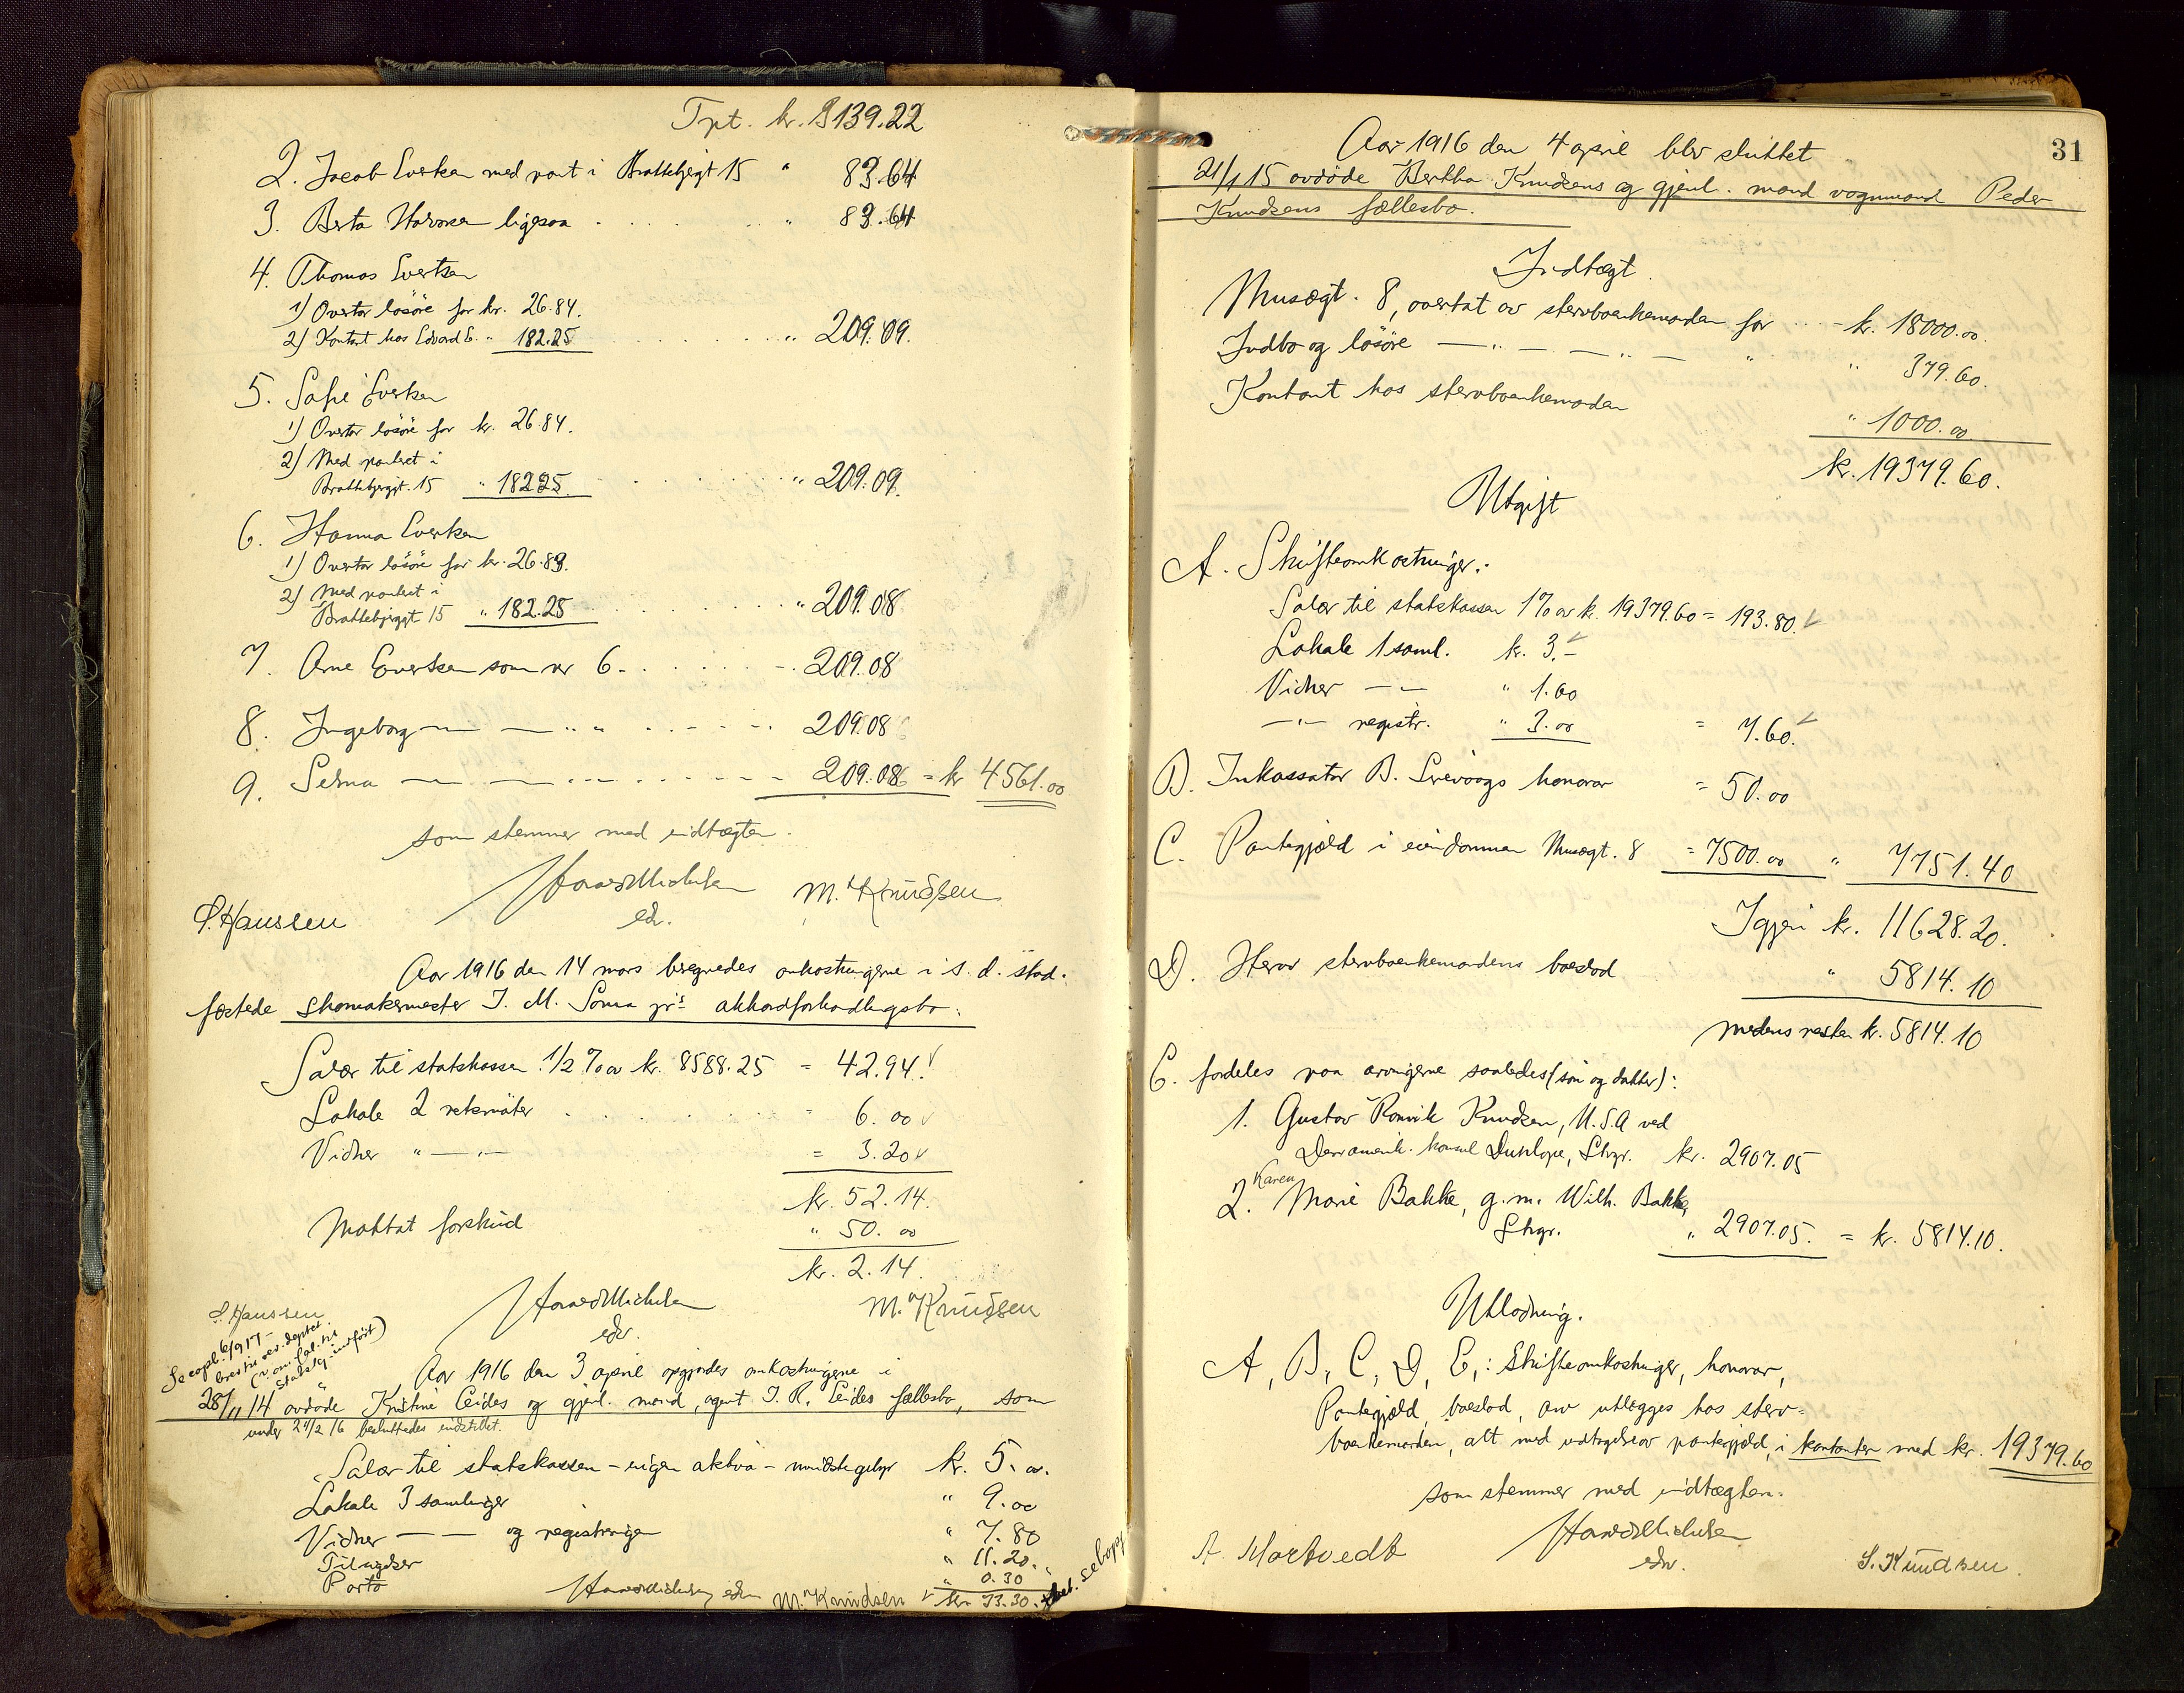 Tpt. kr. 3139.22
2. Jacob Evertsen med pant i Brattebjergt 15 " 83.64
3. Berta Halvorsen ligesaa " 83.64
4. Thomas Evertsen
1) Overtar lösöre for kr. 26.84.
2) Kontant hos Edvard E. " 182.25 " 209.09.
5. Sofie Evertsen
1) Overtar lösöre for kr. 26.84.
2) Med panteret i
Brattebjergt. 15 " 182.25 " 209.09.
6. Hanna Evertsen
1) Overtar lösöre for kr. 26.83.
2) Med panteret i
Brattebjergt 15 " 182.25 " 209.08
7. Arne Evertsen som nr 6 - 209.08
8. Ingeborg — — " " - 209.08
9. Selma — — - 209.08 = kr 4561.00
som stemmer med indtægten.
S. Hanssen edv. M. Knudsen
Aar 1916 den 14 mars beregnedes omkostningerne i s. d. stad-
fæstede skomakermester J. M. Soma jr's akkordforhandlingsbo:
Salær til statskassen 1/2 % av kr. 8588.25 = 42.94.
Lokale 2 retsmöter = 6.00
Vidner " — " — = 3.20
kr. 52.14.
Mottat forskud " 50.00
kr. 2.14.
S. Hanssen edv. M. Knudsen
Aar 1916 den 3 april opgjordes omkostningerne i
28/11 14 avdøde Kristine Eides og gjenl. mand, agent J. R. Eides fællesbo, som
under 24/2 16 besluttedes indstillet.
Salær til statskassen - ingen aktiva - mindstegebyr kr. 5.00.
Lokale 3 samlinger " 9.00
Vidner — — og registreringen " 7.80
Tilsigelser " 11.20.
Porto " 0.30
edv. M. Knudsen kr. 33.30.
31
Aar 1916 den 4 april blev sluttet
21/1 15 avdøde Bertha Knudsens og gjenl. mand vognmand Peder
Knudsens fællesbo.
Indtægt.
Musægt. 8, overtat av stervboenkemanden for - kr. 18000.00.
Indbo og lösöre — " — — " — " " 379.60.
Kontant hos stervboenkemanden " 1000.00
kr. 19379.60.
Utgift
A. Skifteomkostninger:
Salær til statskassen 1% av kr. 19379.60 = 193.80.
Lokale 1 saml. kr. 3.-
Vidner — — " 1.60
— " — registr. " 3.00 = 7.60.
B. Inkassator B. honorar = 50.00
C. Pantegjæld i eiendommen Musægt. 8 = 7500.00 " 7751.40
Igjen kr. 11628.20.
D. Herav stervboenkemandens boeslod " 5814.10
medens resten kr. 5814.10
E. fordeles paa arvingerne saaledes (søn og datter):
1. Gustav Knudsen, U.S.A ved
Den amerik. konsul Dunlope, Stvgr. kr. 2907.05
Karen
2. Marie Bakke, g.m. Wilh. Bakke,
Stvgr. " 2907.05. = kr. 5814.10.
Utlodning.
A, B, C, D, E,: Skifteomkostninger, honorar,
Pantegjæld, boeslod, arv utlægges hos sterv-
boenkemanden, alt med undtagelse av pantegjæld, i kontanter med kr. 19379.60
som stemmer med indtægten.
A. Hartvedt edv. S. Knudsen.